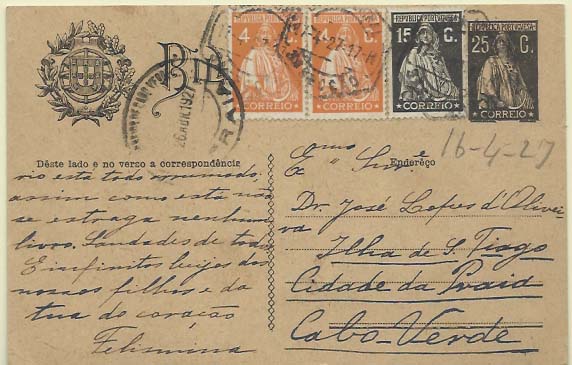 REPUBLICA PORTUGUESA
4 C.
CORREIO
C.
CORREIO
REPUBLICA PORTUGUESA
15 C.
CORREIO
REPUBLICA PORTUGUESA
25 C.
CORREIO
26 ABR. 1927
16-4-27
Dêste lado e no verso a correspondência
Enderêço
rio esta todo arrumado,
assim como está não
se estraga nenhum
livro. Saudades de todos
E infinitos beijos dos
nossos filhos e da
tua do coração
Felismina
Exmo Snr.
Dr. José Lopes d'Olivei
va
Ilha de S. Tiago
Cidade da Praia
Cabo-Verde